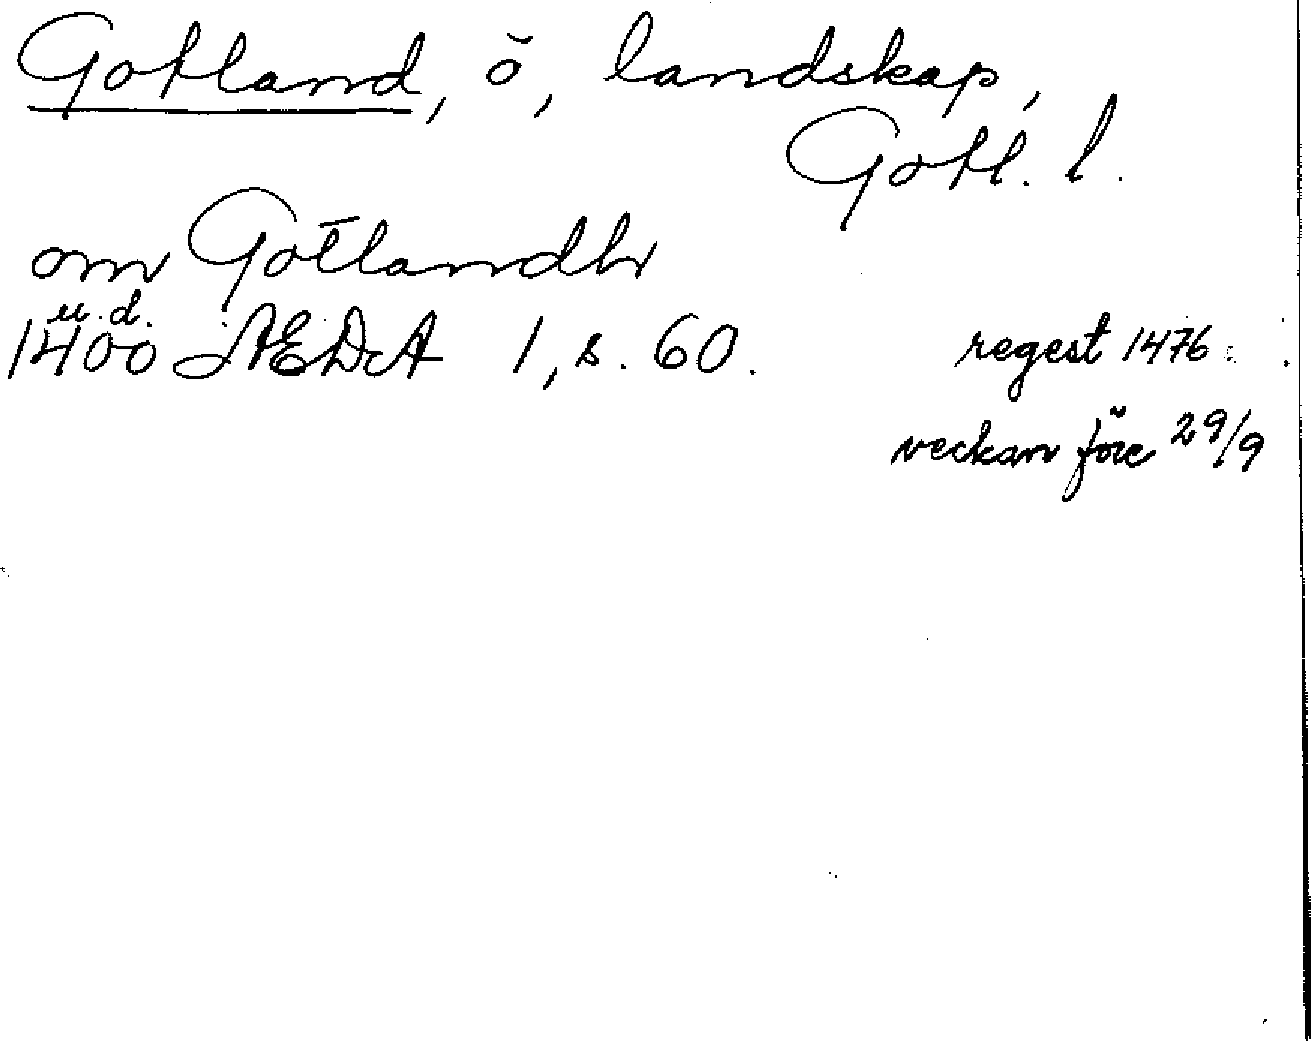 Gotland, ö, landskap,
Gotl. l.
om Gotlandh
u. d.
1400 ÆDA 1, s. 60.
regest 1476
veckan före 29/9